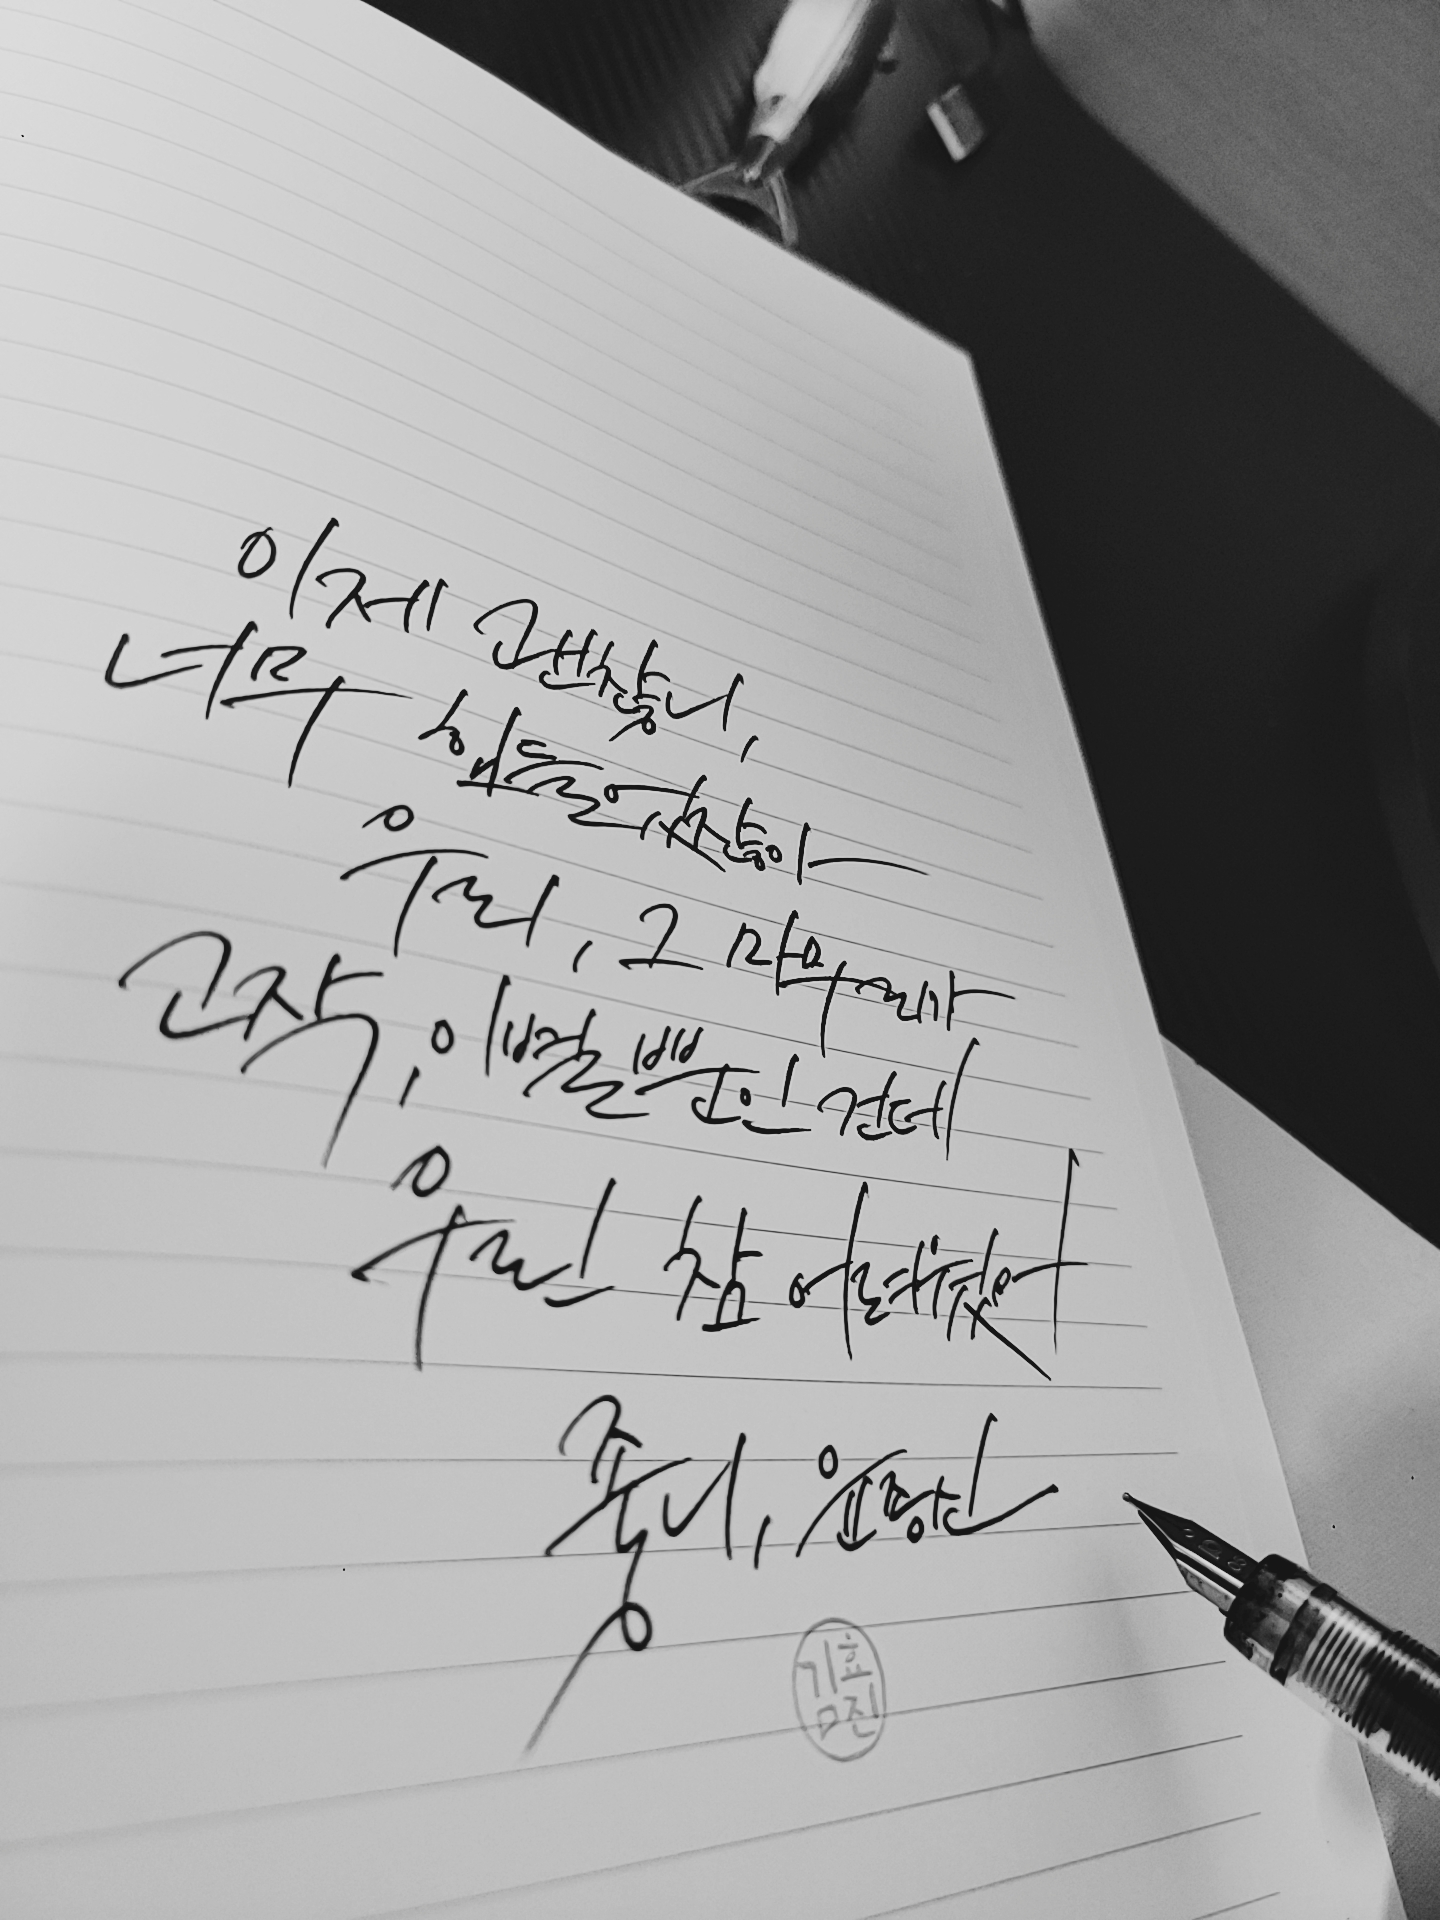 이제 괜찮니,
너무 힘들었잖아
우리, 그 마무리가
고작, 이별뿐인 건데
우린 참 어려웠어
좋니, 윤종신
김효진